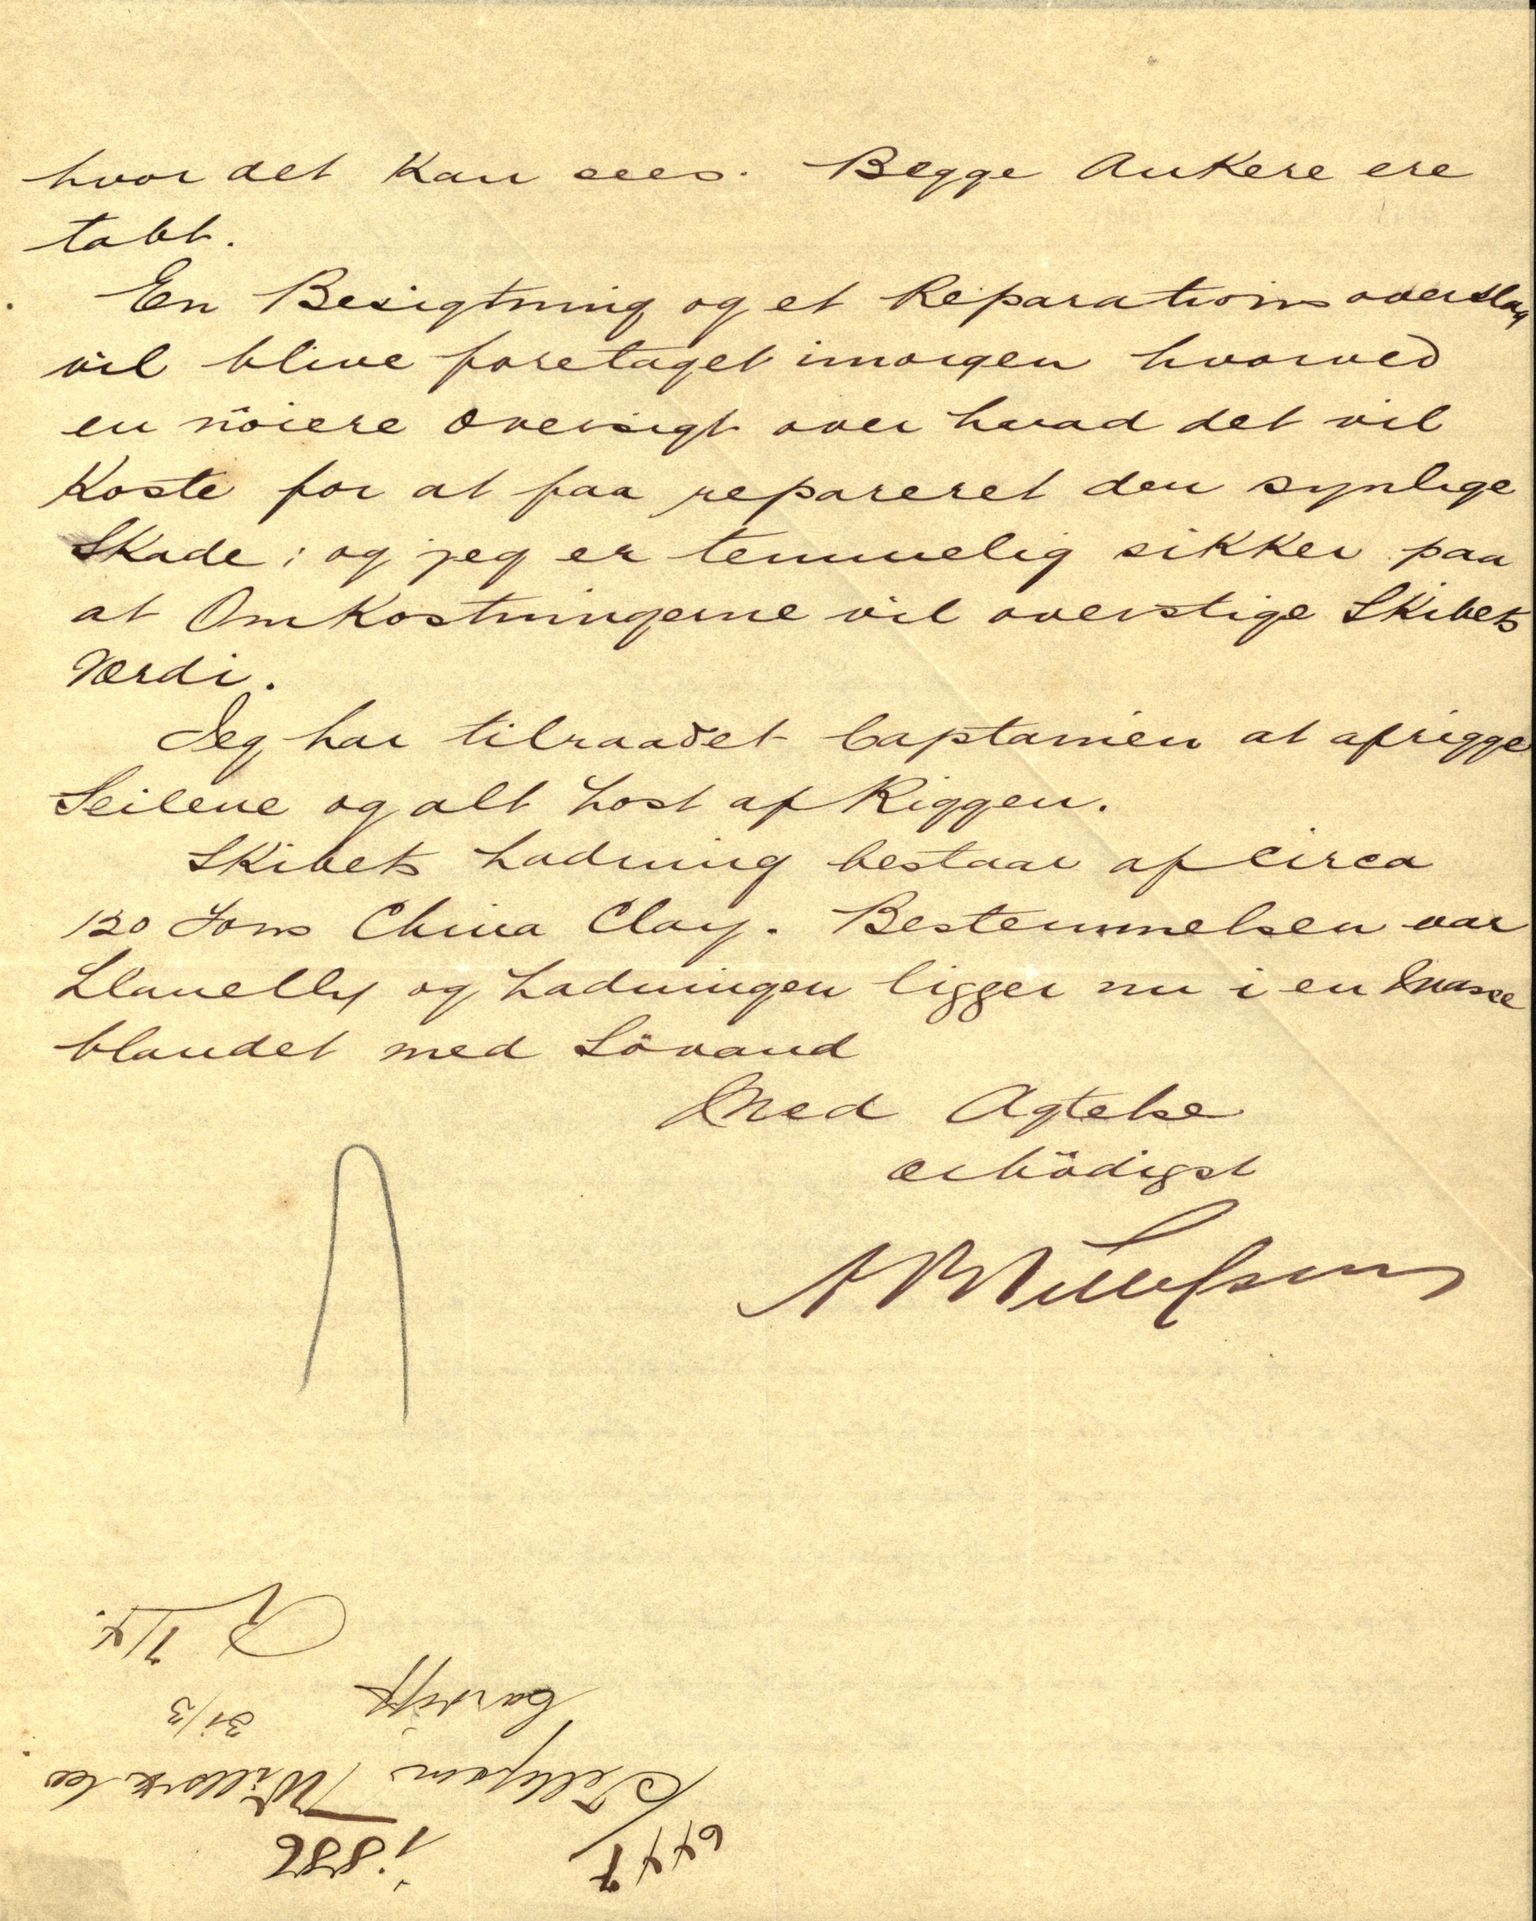 hvor det Kan sees. Begge Ankere ere
tabt.
En Besigtning og et Reparations overslag
vil blive foretaget imorgen hvorved
en nöiere Oversigt over hvad det vil
Koste for at faa repareret den synlige
Skade; og jeg er temmelig sikker paa
at Omkostningerne vil overstige Skibets
Værdi.
Jeg har tilraadet Captainen at afrigge
Seilene og alt Löst af Riggen.
Skibets Ladning bestaar af circa
120 Tons China Clay. Bestemmelsen var
Llanelly og Ladningen ligger nu i en Masse
blandet med Sövand
Med Agtelse
ærbödigst
1886
Cardiff
31/3
1/4.